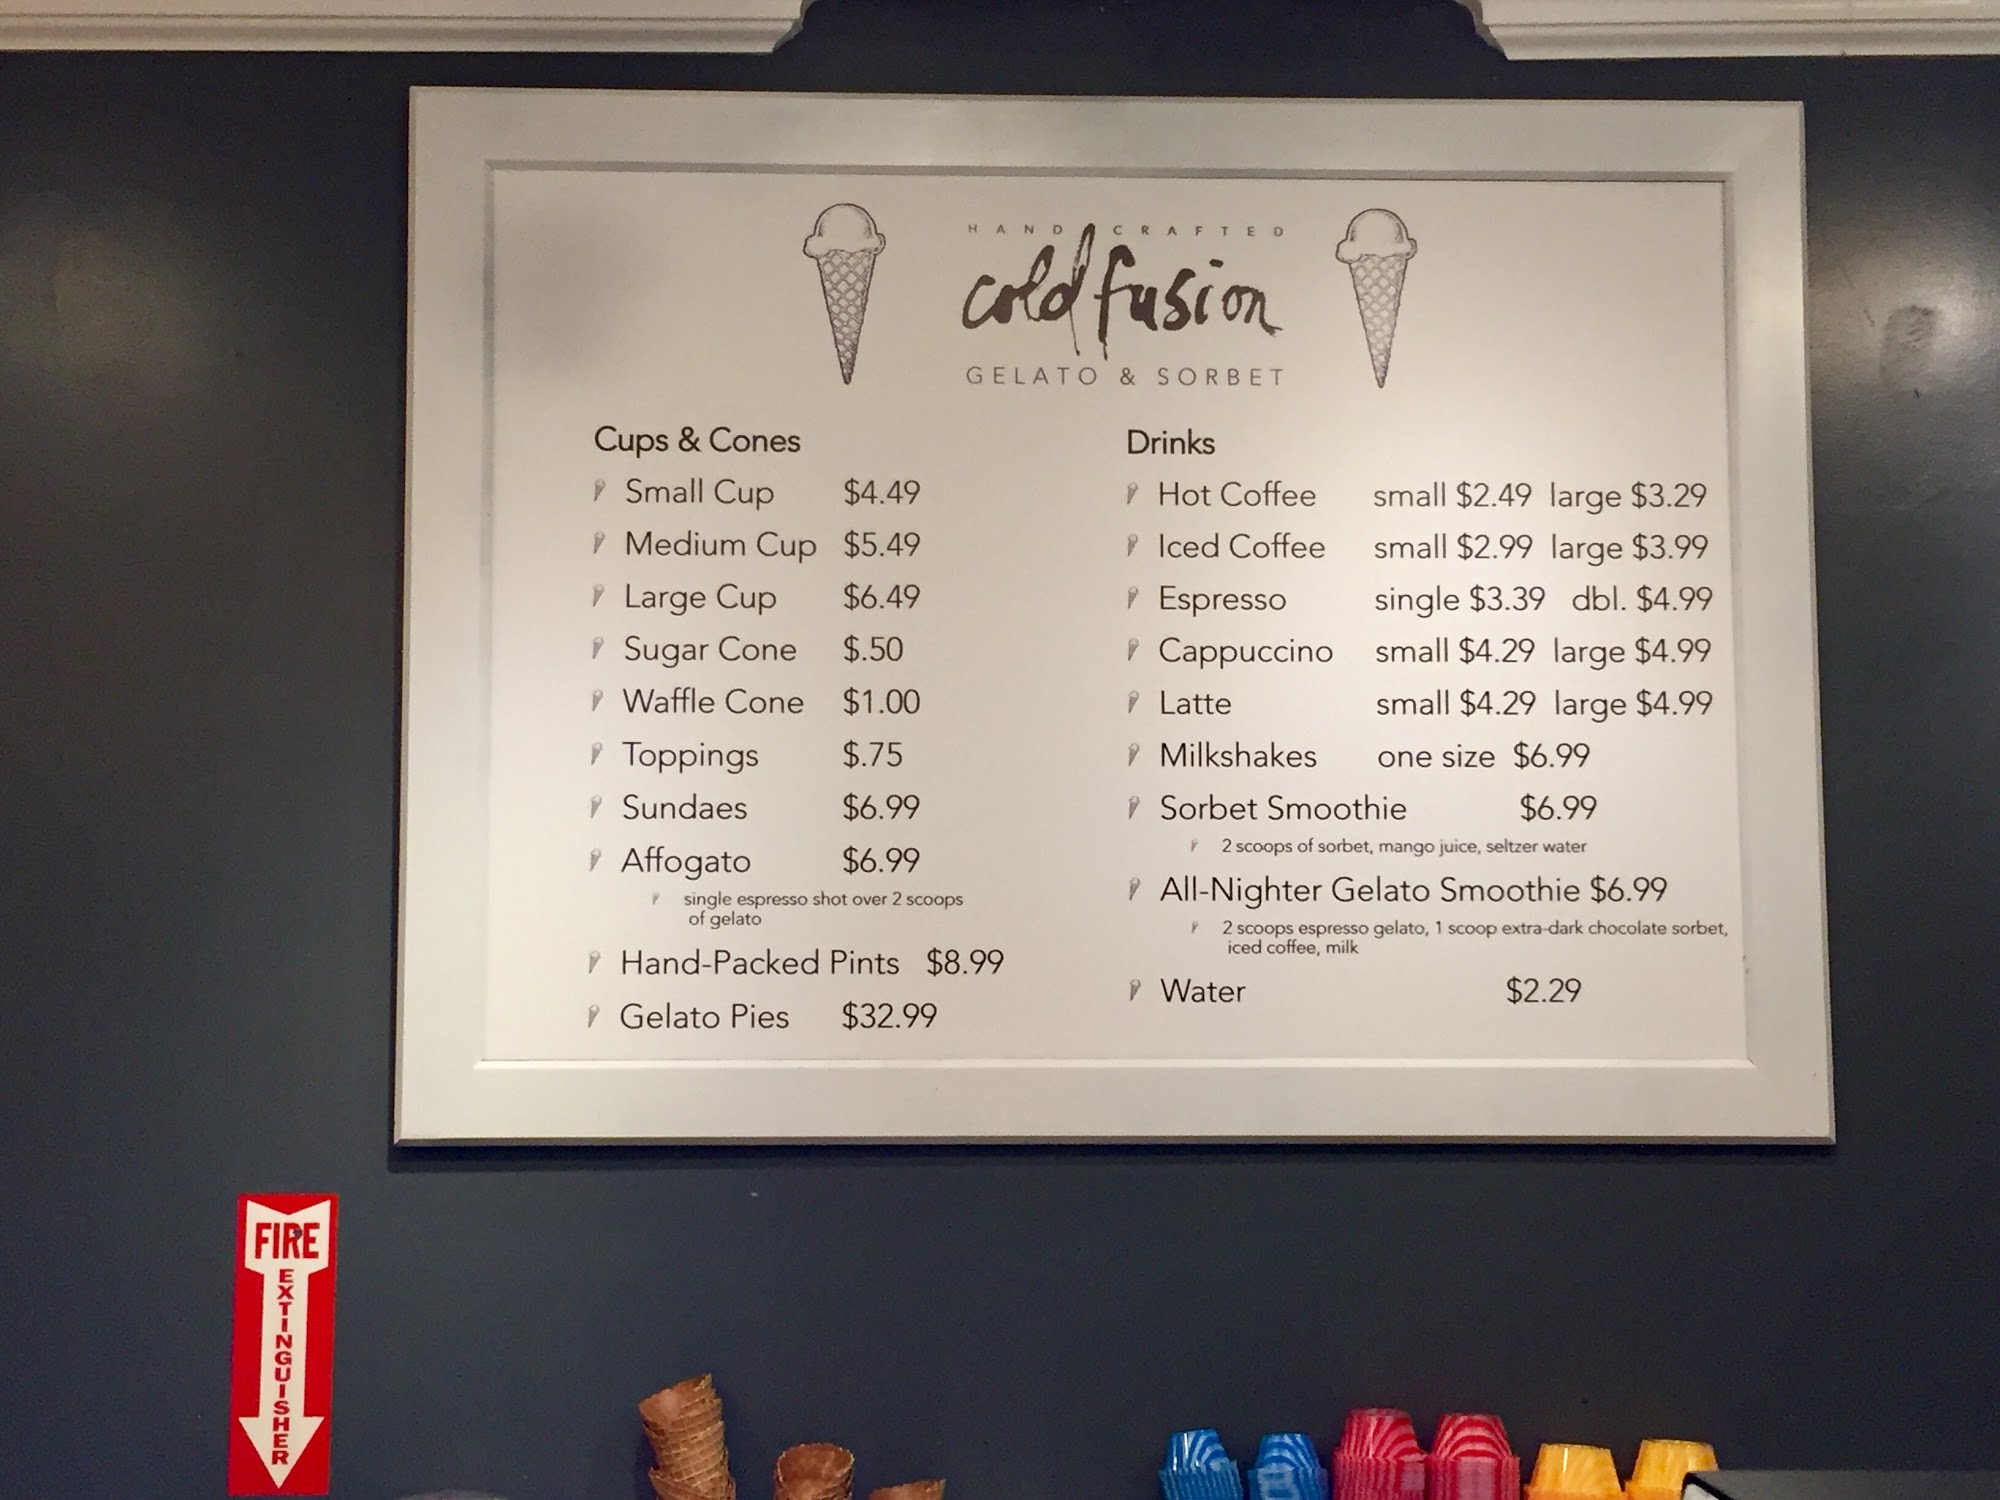 HAND CRAFTED
cold fusion
GELATO & SORBET
Cups & Cones
Small Cup $4.49
Medium Cup $5.49
Large Cup $6.49
Sugar Cone $.50
Waffle Cone $1.00
Toppings $.75
Sundaes $6.99
Affogato $6.99
single espresso shot over 2 scoops
of gelato
Hand-Packed Pints $8.99
Gelato Pies $32.99
Drinks
Hot Coffee small $2.49 large $3.29
Iced Coffee small $2.99 large $3.99
Espresso single $3.39 dbl. $4.99
Cappuccino small $4.29 large $4.99
Latte small $4.29 large $4.99
Milkshakes one size $6.99
Sorbet Smoothie $6.99
2 scoops of sorbet, mango juice, seltzer water
All-Nighter Gelato Smoothie $6.99
2 scoops espresso gelato, 1 scoop extra-dark chocolate sorbet,
iced coffee, milk
Water $2.29
FIRE
EXTINGUISHER